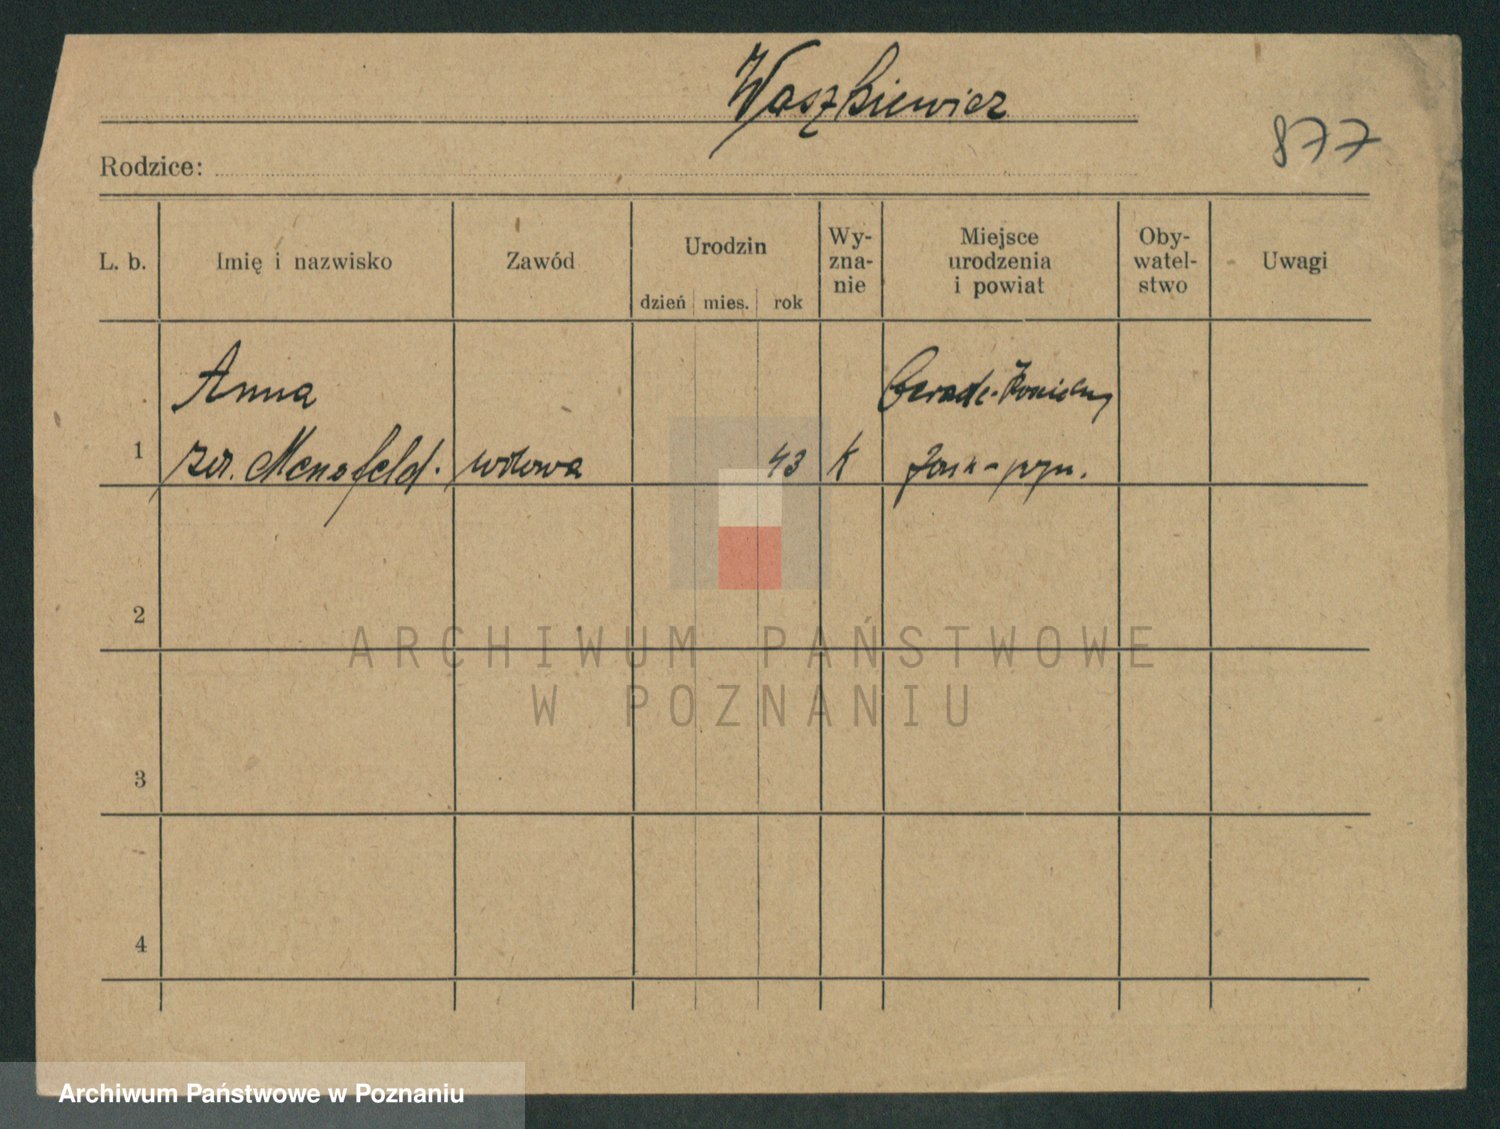 Waszkiewicz
877
Rodzice:
L. b. Imię i nazwisko Zawód Urodzin dzień mies. rok Wy-zna-nie Miejsce urodzenia i powiat Oby-watel-stwo Uwagi
Anna
1 zur. Mensfeld. wdowa 43 K
2
3
4
ARCHIWUM PAŃSTWOWE
W POZNANIU
Archiwum Państwowe w Poznaniu